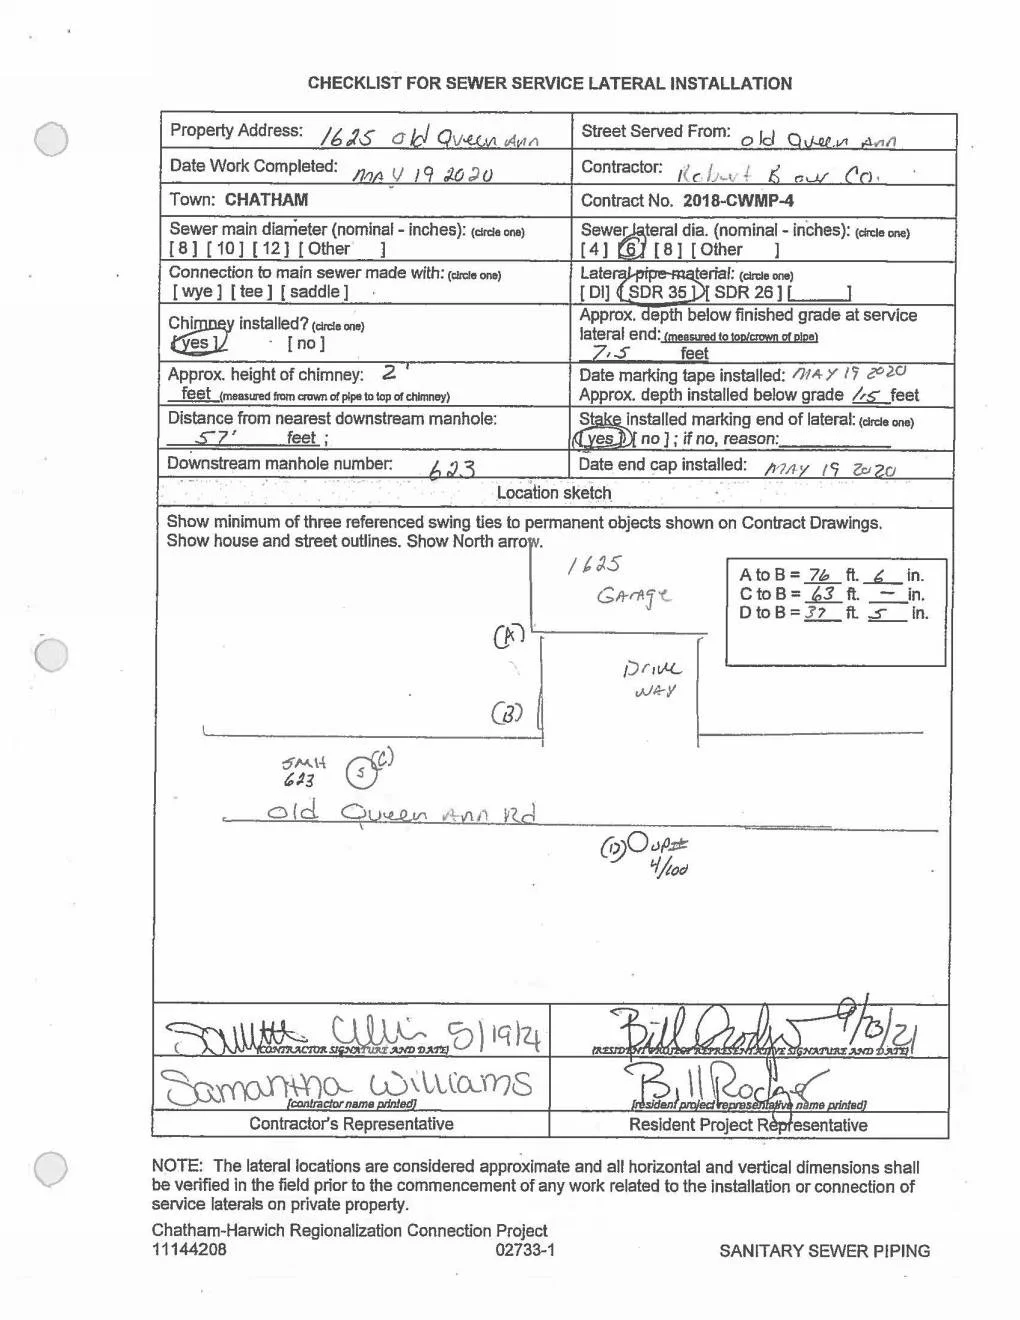 CHECKLIST FOR SEWER SERVICE LATERAL INSTALLATION
Property Address: 1625 old Queen Ann
Street Served From: old Queen Ann
Date Work Completed: MAY 19 2020
Contractor: Robert B our Co.
Town: CHATHAM
Contract No. 2018-CWMP-4
Sewer main diameter (nominal - inches): (circle one)
[ 8 ] [ 10 ] [ 12 ] [ Other ]
Sewer lateral dia. (nominal - inches): (circle one)
[ 4 ] [ 6 ] [ 8 ] [ Other ]
Connection to main sewer made with: (circle one)
[ wye ] [ tee ] [ saddle ]
Lateral pipe material: (circle one)
[ DI] [ SDR 35 ] [ SDR 26 ] [ ]
Chimney installed? (circle one)
[yes ] [ no ]
Approx. depth below finished grade at service
lateral end: (measured to top/crown of pipe)
7.5 feet
Approx. height of chimney: 2 '
feet (measured from crown of pipe to top of chimney)
Date marking tape installed: MAY 19 2020
Approx. depth installed below grade 1.5 feet
Distance from nearest downstream manhole:
57' feet ;
Stake installed marking end of lateral: (circle one)
[ yes ] [ no ] ; if no, reason:
Downstream manhole number: 623
Date end cap installed: MAY 19 2020
Location sketch
Show minimum of three referenced swing ties to permanent objects shown on Contract Drawings.
Show house and street outlines. Show North arrow.
1625
GArAge
A to B = 76 ft. 6 in.
C to B = 63 ft. — in.
D to B = 37 ft. 5 in.
(A)
Drive
WAY
(B)
SMH
623
S
(C)
old Queen Ann Rd
(D) UP#
4/100
5/19/21
Bill Rodger 9/23/21
[CONTRACTOR SIGNATURE AND DATE]
[RESIDENT PROJECT REPRESENTATIVE SIGNATURE AND DATE]
Samantha Williams
Bill Rodger
[contractor name printed]
[resident project representative name printed]
Contractor's Representative
Resident Project Representative
NOTE: The lateral locations are considered approximate and all horizontal and vertical dimensions shall
be verified in the field prior to the commencement of any work related to the installation or connection of
service laterals on private property.
Chatham-Harwich Regionalization Connection Project
11144208 02733-1 SANITARY SEWER PIPING